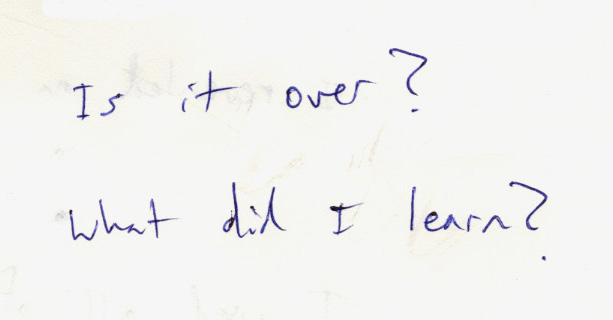 Is it over?
What did I learn?